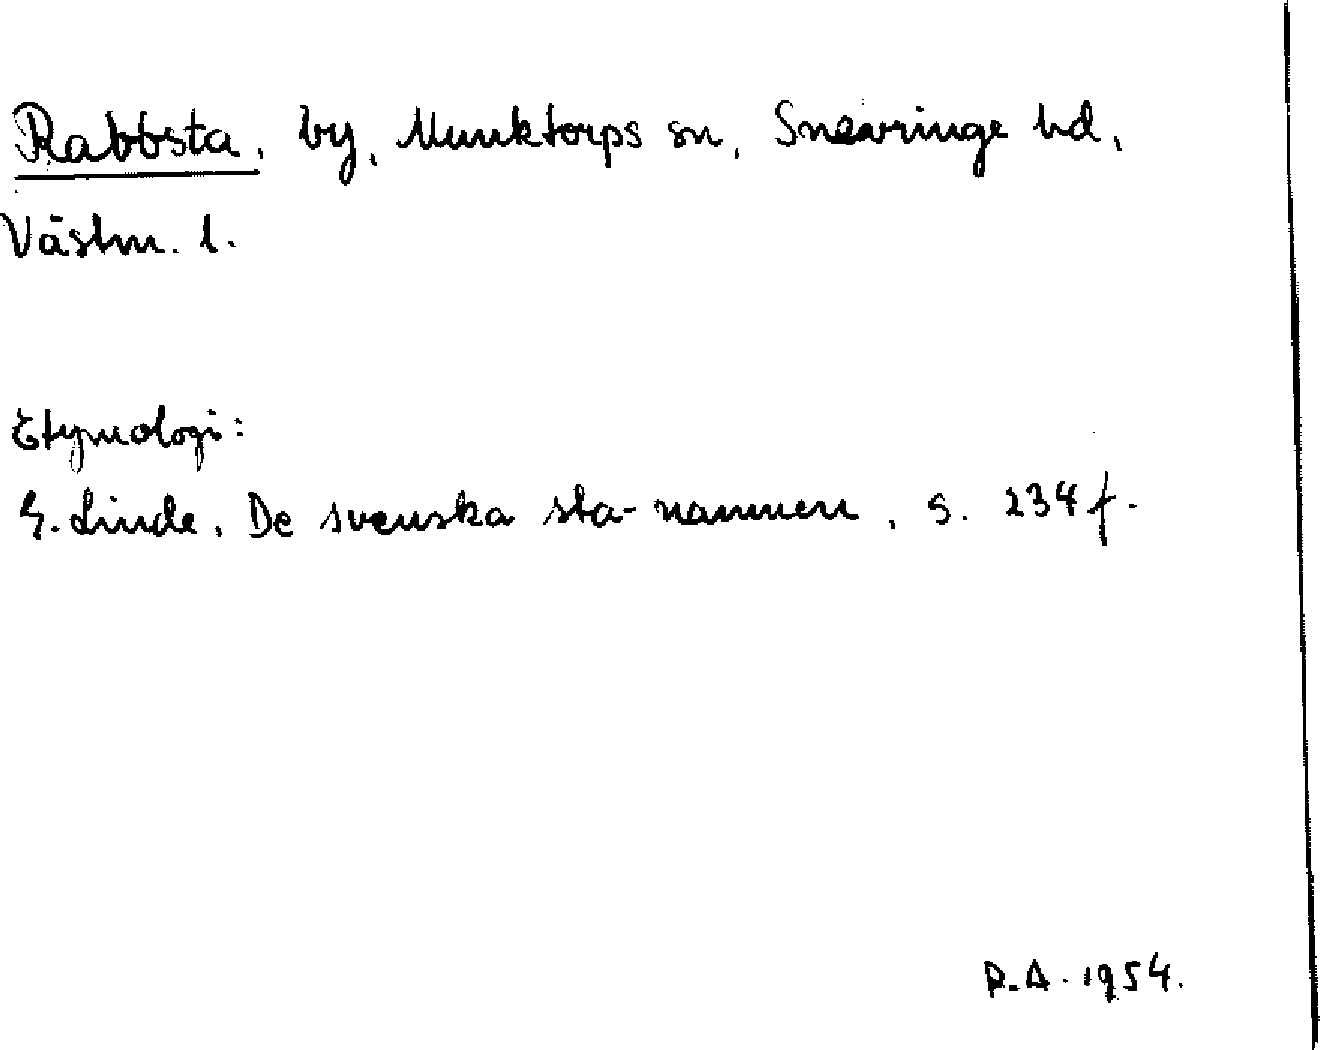 Rabbsta, by, Munktorps sn, Snevringe hd,
Västm. l.
Etymologi:
G. Linde, De svenska sta-namnen, s. 234 f.
R.A. 1954.